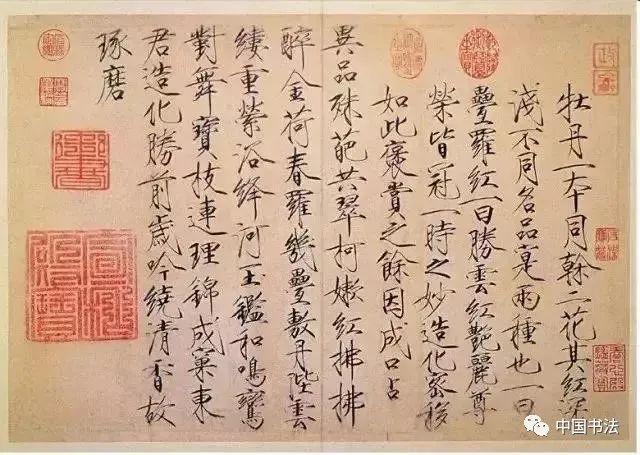 牡丹一本同幹二花其紅深
淺不同名品寔兩種也一曰
疊羅紅一曰勝雲紅艷麗尊
榮皆冠一時之妙造化密移
如此褒賞之餘因成口占
異品殊葩共翠柯嫩紅拂拂
醉金荷春羅幾疊敷丹陛雲
縷重縈浴絳河玉鑑和鳴鸞
對舞寶枝連理錦成窠東
君造化勝前歲吟繞清香故
琢磨
中国书法